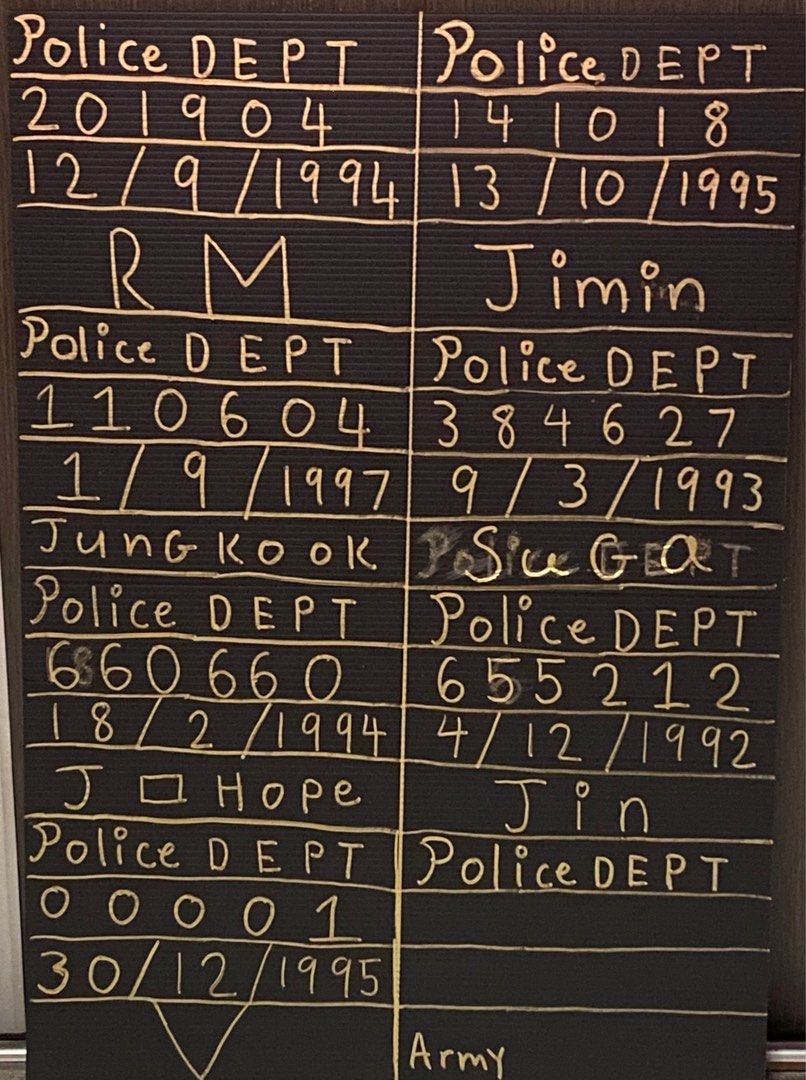 Police DEPT
201904
12/9/1994
RM
Police DEPT
141018
13/10/1995
Jimin
Police DEPT
110604
1/9/1997
JunGKooK
Police DEPT
384627
9/3/1993
SuGa
Police DEPT
660660
18/2/1994
J□Hope
Police DEPT
655212
4/12/1992
Jin
Police DEPT
00001
30/12/1995
V
Police DEPT
Army